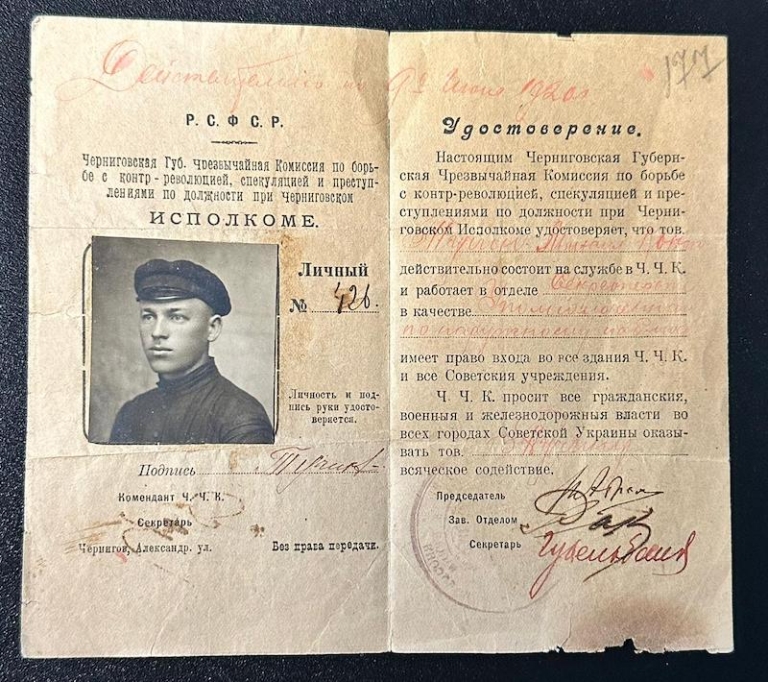 177
Р. С. Ф. С. Р.
Черниговская Губ. Чрезвычайная Комиссия по борь-
бе с контр-революцией, спекуляцией и преступ-
лениями по должности при Черниговском
ИСПОЛКОМЕ.
Личный
№ 426.
Личность и под-
пись руки удосто-
веряется.
Подпись
Комендант Ч. Ч. К.
Секретарь
Чернигов, Александр. ул.
Без права передачи.
Удостоверение.
Настоящим Черниговская Губерн-
ская Чрезвычайная Комиссия по борьбе
с контр-революцией, спекуляцией и пре-
ступлениями по должности при Черни-
говском Исполкоме удостоверяет, что тов.
действительно состоит на службе в Ч. Ч. К.
и работает в отделе
в качестве
имеет право входа во все здания Ч. Ч. К.
и все Советския учреждения.
Ч. Ч. К. просит все гражданския,
военныя и железнодорожныя власти во
всех городах Советской Украины оказы-
вать тов.
всяческое содействие.
Председатель
Зав. Отделом
Секретарь